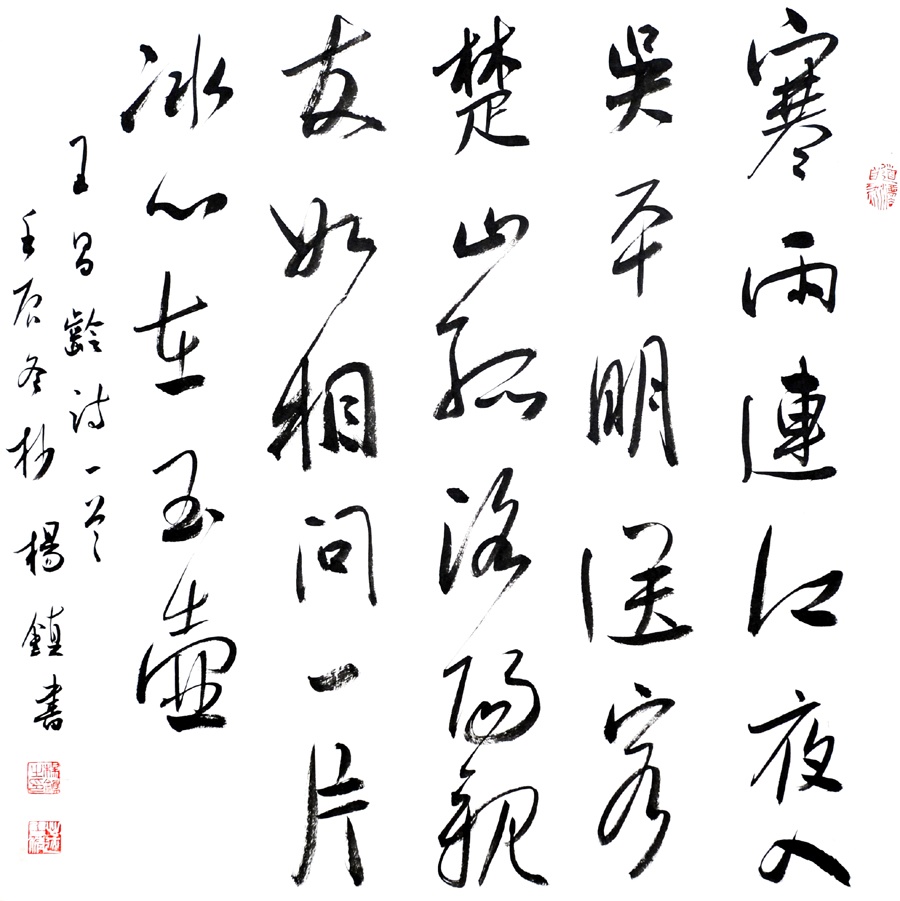 寒雨連江夜入
吳平明送客
楚山孤洛陽親
友如相问一片
冰心在玉壺
王昌齡诗一首
壬辰冬杪楊鎮書